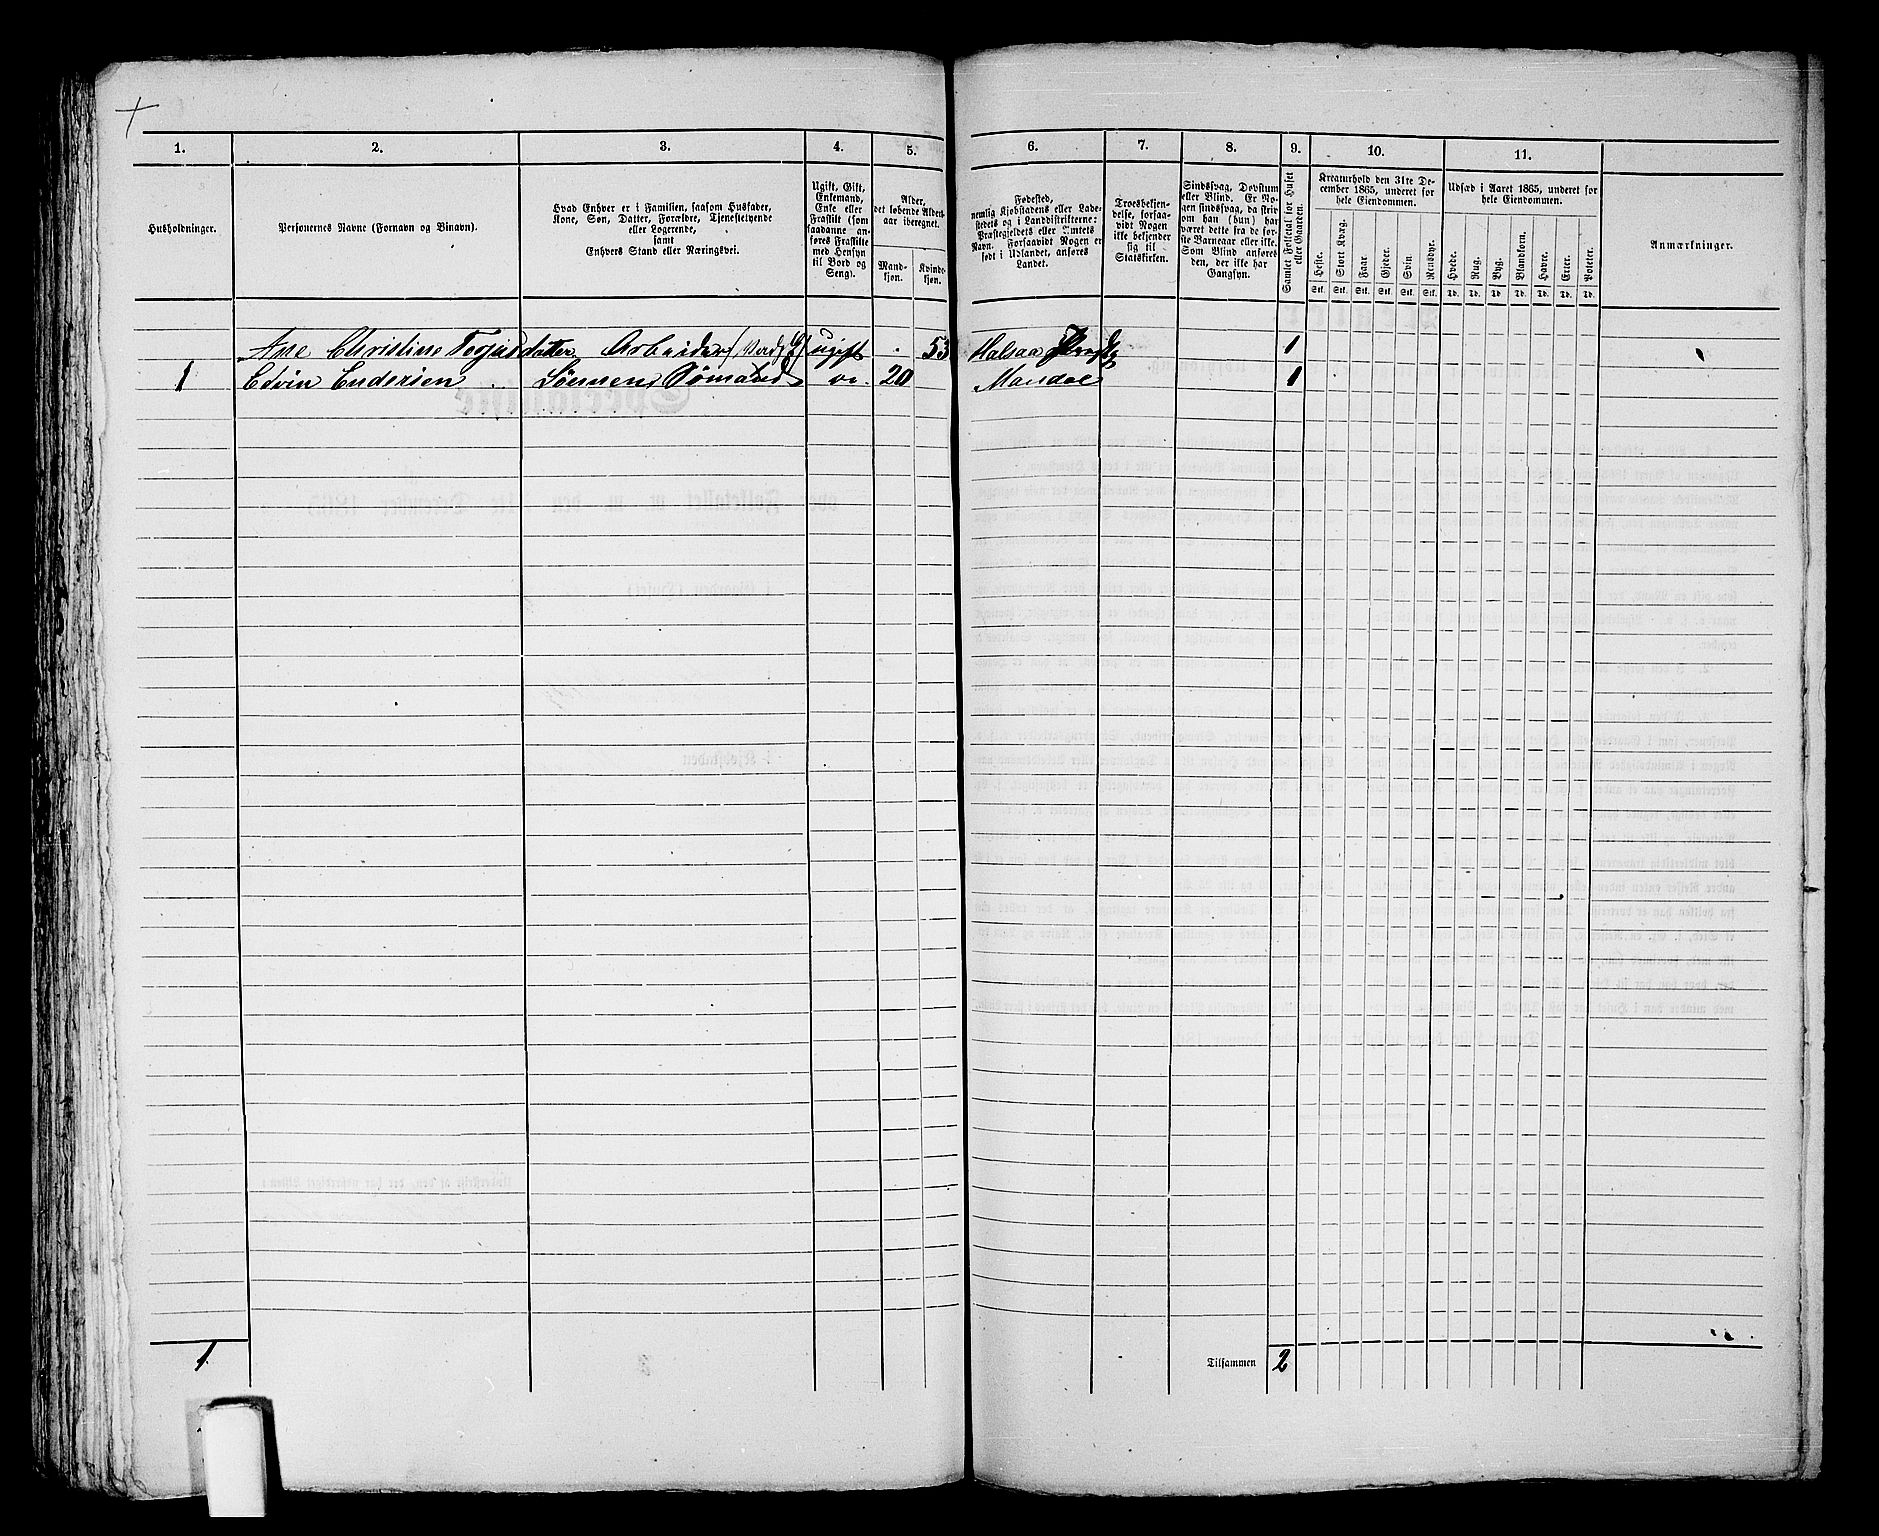 1. 2. 3. 4. 5. 6. 7. 8. 9. 10. 11.
Husholdninger.
Personernes Navne (Fornavn og Binavn).
Hvad Enhver er i Familien, saasom Husfader,
Kone, Søn, Datter, Forældre, Tjenestetyende
eller Logerende,
samt
Enhvers Stand eller Næringsvei.
Ugift, Gift,
Enkemand,
Enke eller
Fraskilt (som
saadanne an-
føres Fraskilte
med Hensyn
til Bord og
Seng).
Alder,
det løbende Alders-
aar iberegnet.
Mand-
kjøn.
Kvinde-
kjøn.
Fødested,
nemlig Kjøbstadens eller Lade-
stedets og i Landdistrikterne:
Præstegjeldets eller Amtets
Navn. Forsaavidt Nogen er
født i Udlandet, anføres
Landet.
Troesbekjen-
delse, forsaa-
vidt Nogen
ikke bekjender
sig til
Statskirken.
Sindssvag, Døvstum
eller Blind. Er No-
gen sindssvag, da skriv
om han (hun) har
været dette fra de før-
ste Barneaar eller ikke.
Som Blind anføres
den, der ikke har
Gangsyn.
Samlet Folketal for Huset
eller Gaarden.
Kreaturhold den 31te De-
cember 1865, underet for
hele Eiendommen.
Heste. Stort Kvæg. Faar. Gjeder. Svin. Rensdyr.
Stk. Stk. Stk. Stk. Stk. Stk.
Udsæd i Aaret 1865, underet for
hele Eiendommen.
Hvede. Rug. Byg. Blandkorn. Havre. Erter. Poteter.
Td. Td. Td. Td. Td. Td. Td.
Anmærkninger.
Ane Christine Torjusdatter Arbeider ugift 53 Halsaa 1
1 Edvin Endersen Sønnen Sømand 20 Mandal 1
1 Tilsammen 2